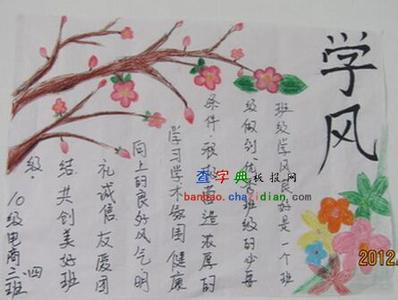 学风
班级学风良好是一个班
级做到优秀班级的必要
条件.积极营造浓厚的
学习学术氛围 健康
向上的良好风气 明
礼诚信 友爱团
结 共创美好班
级.
10级电商二班 四
查字典板报网
banbao.chazidian.com
2012.